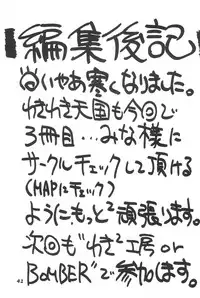 編集後記
ぬいやあ寒くなりました。
わきわき天国も今回で
3冊目…みな様に
サークルチェックして頂ける
(MAPにチェック)
ようにもっと²頑張ります。
次回も"わき²工房or
BOMBER"で参加します。
42